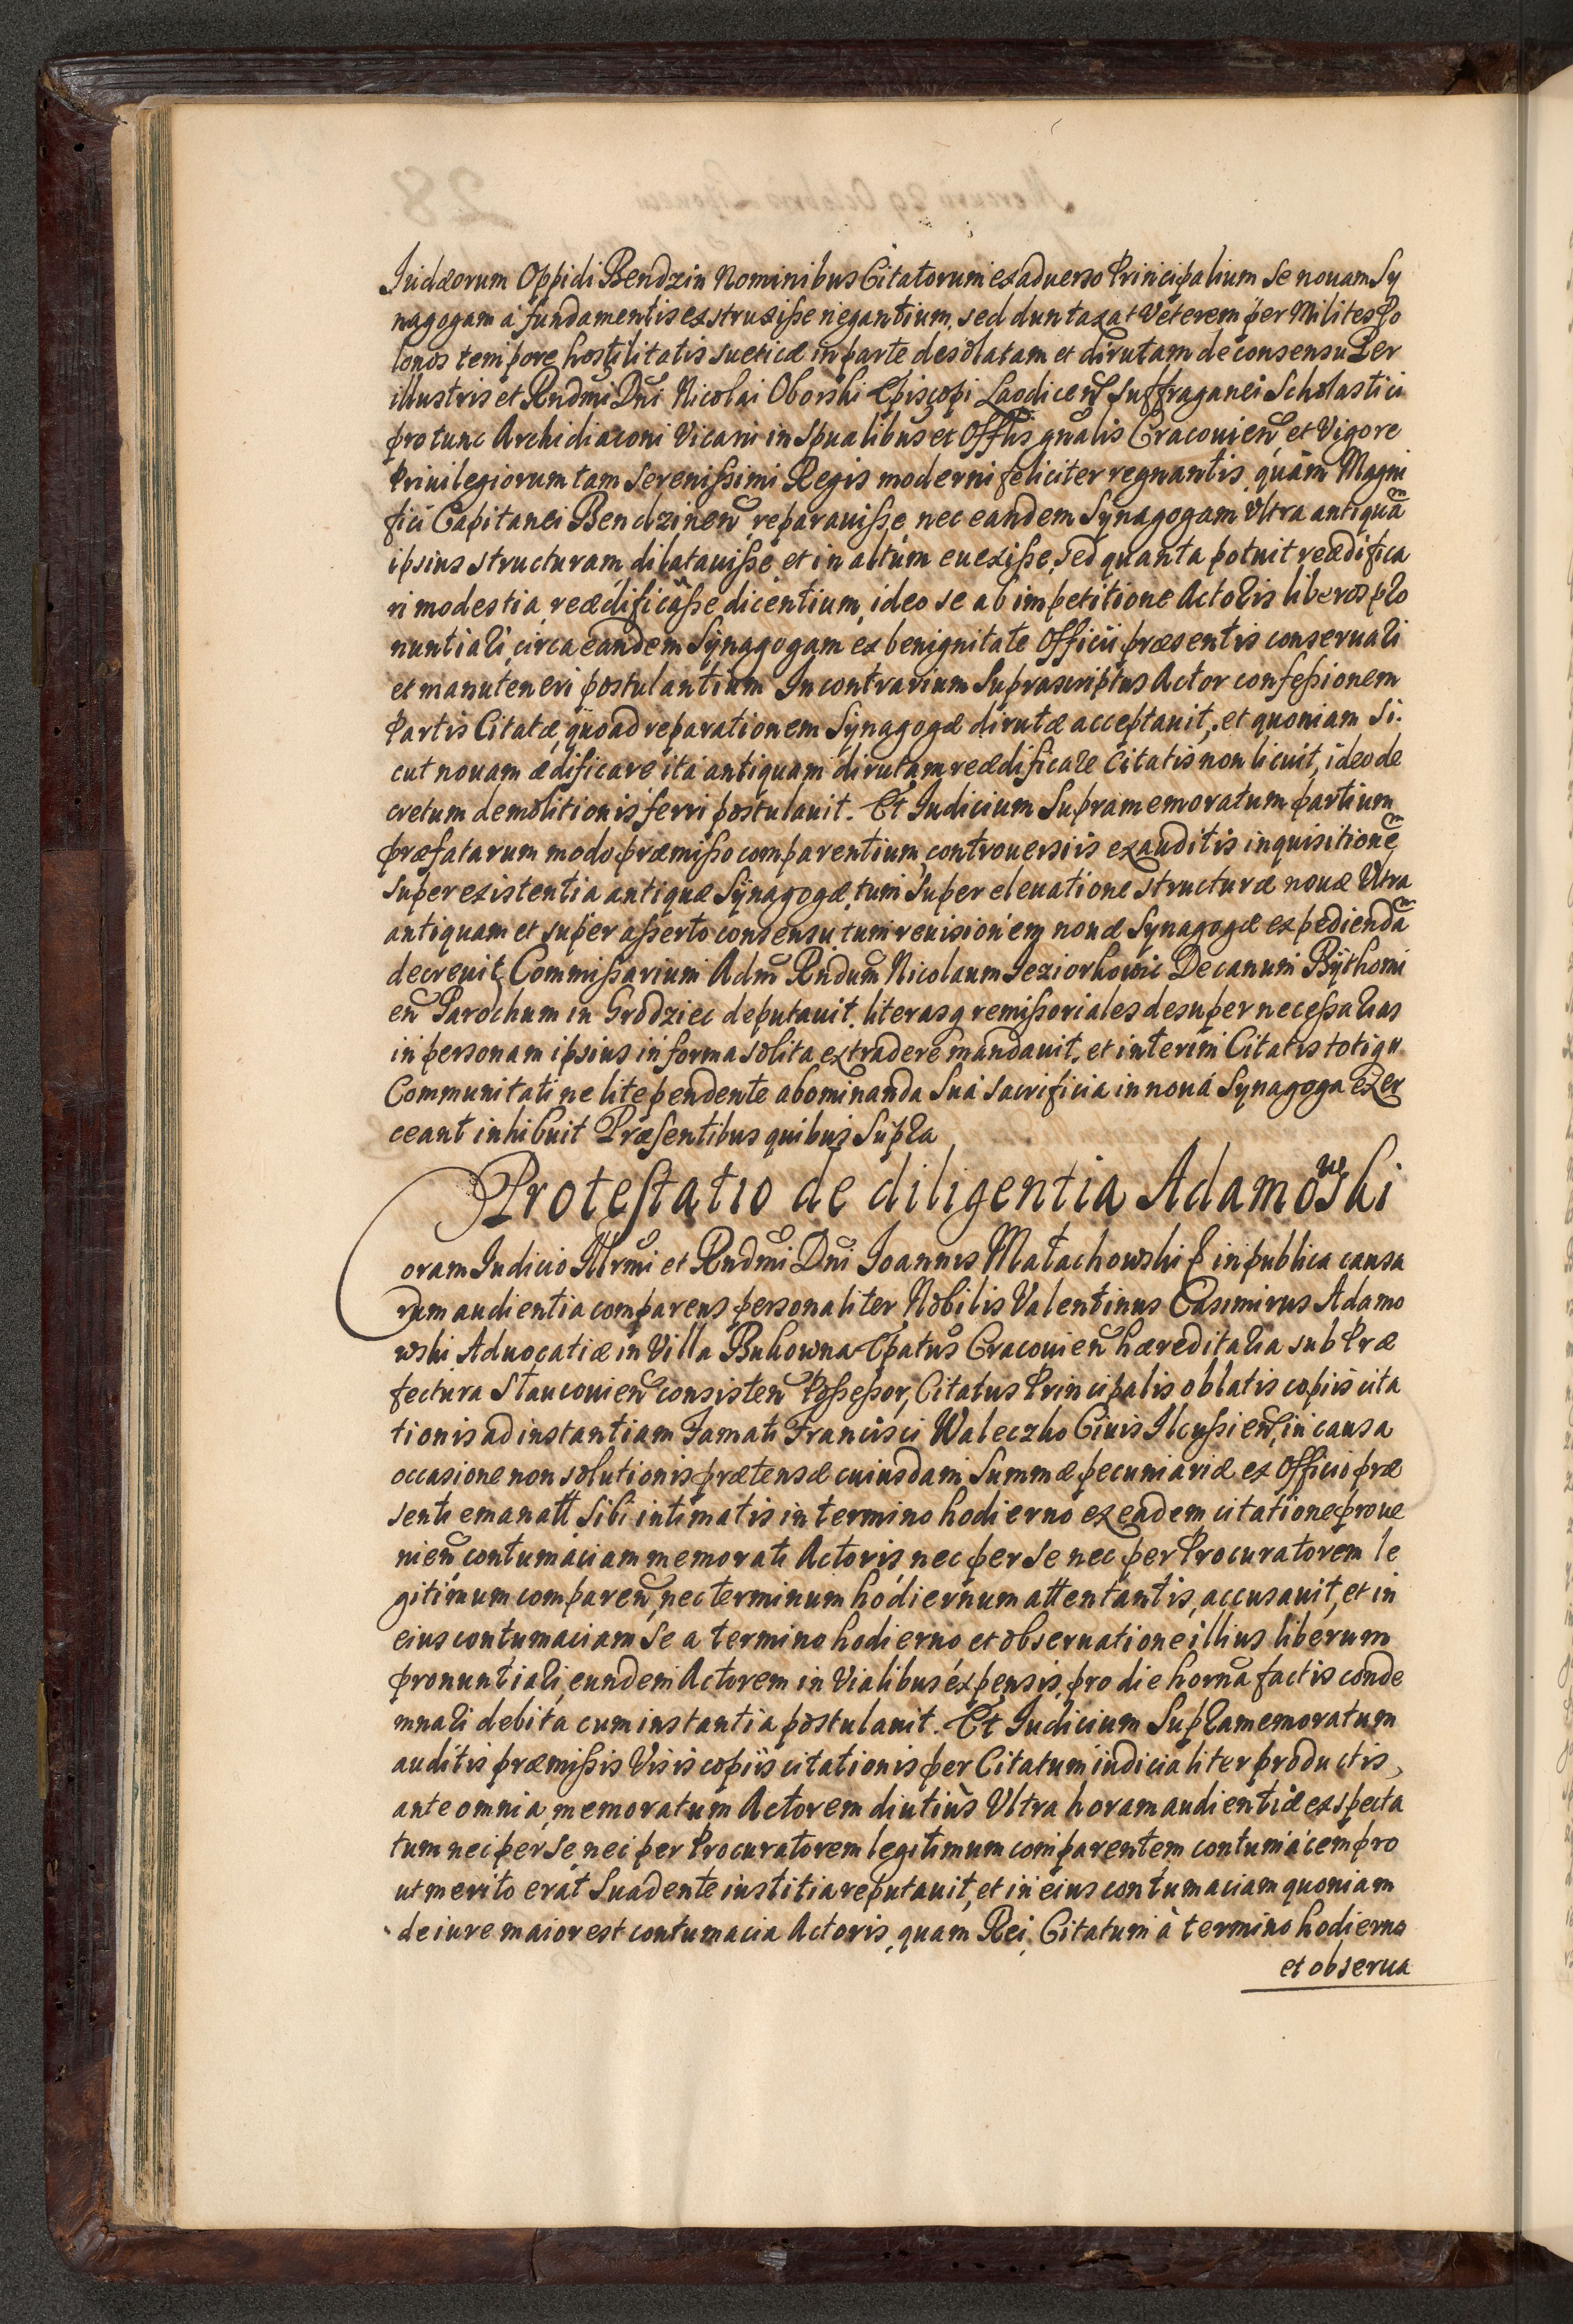 Iudæorum Oppidi Bendzin Nominibus Citatorum ex aduerso Principalium se nouam Sy
nagogam à fundamentis exstruxiße negantium, sed duntaxat Veterem per Milites Po
lonos tempore hostilitatis sueticæ in parte desolatam et dirutam de consensu Per
illustris et Rndmi Dni Nicolai Oborski Episcopi Laodiceñ Suffraganei Scholastici
pro tunc Archidiaconi Vicarii in Spualibus et Offlis gnalis Cracouieñ, et Vigore
Priuilegiorum tam Serenißimi Regis moderni feliciter regnantis, quàm Magni
fici Capitanei Bendzineñ, reparauiße, nec eandem Synagogam Vltra antiquã
ipsius structuram, dilatauiße et in altum euexiße, sed quanta potuit reædifica
ri modestia, reædificâße dicentium, ideo se ab impetitione Actoris liberos pro
nuntiari, circa eandem Synagogam ex benignitate Officii præsentis conseruari
et manuteneri postulantium In contrarium Suprascriptus Actor confeßionem
Partis Citatæ, quoad reparationem Synagogæ dirutæ acceptauit, et quoniam si-
cut nouam ædificare ita antiquam dirutam reædificare Citatis non licuit, ideo de
cretum demolitionis ferri postulauit. Et Iudicium Supramemoratum partium
præfatarum modo præmißo comparentium, controuersiis exauditis inquisitionẽ
super existentia antiquæ Synagogæ, tum Super eleuatione structuræ nouæ Vltra
antiquam et super aßerto consensu, tum reuisionem nouæ Synagogæ expediendã
decreuit, Commißarium Adm Rndum Nicolaum Ieziorkowic Decanum Bythomi
eñ Parochum in Grodziec deputauit, literasq remißoriales desuper neceßarias
in personam ipsius in forma solita extradere mandauit, et interim Citatis totiqu
Communitati ne lite pendente abominanda Sua sacrificia in noua Synagoga exer
ceant inhibuit Præsentibus quibus Supra
Protestatio de diligentia Adamowski
Coram Iudicio Illrmi et Rndmi Dni Ioannis Małachowski P in publica causa
rum audientia comparens personaliter Nobilis Valentinus Casimirus Adamo
wski Aduocatiæ in Villa Bukowna Epatus Cracouieñ hæreditaria sub Præ
fectura Slaucouieñ consisteñ Poßeßor, Citatus Principalis oblatis copiis cita
tionis ad instantiam Famati Francisci Waleczko Ciuis Ilcußieñ, in causa
occasione non solutionis prætensæ cuiusdam Summæ pecuniariæ ex Officio præ
senti emanatt Sibi intimatis in termino hodierno ex eadem citatione proue
nieñ contumaciam memorati Actoris, nec per se nec per Procuratorem le
gitimum compareñ, nec terminum hodiernum attentantis, accusauit, et in
eius contumaciam se a termino hodierno et obseruatione illius liberum
pronuntiari, eundem Actorem in Vialibus expensis, pro die horna factis conde
mnari debita cum instantia postulauit. Et Iudicium Supramemoratum
auditis præmißis Visis copiis citationis per Citatum iudicialiter productis,
ante omnia, memoratum Actorem diutiùs Vltra horam audientiæ exspecta
tum nec per se, nec per Procuratorem legitimum comparentem contumacem pro
ut merito erat Suadente iustitia reputauit, et in eius contumaciam quoniam
de iure maior est contumacia Actoris, quam Rei, Citatum à termino hodierno
et obserua